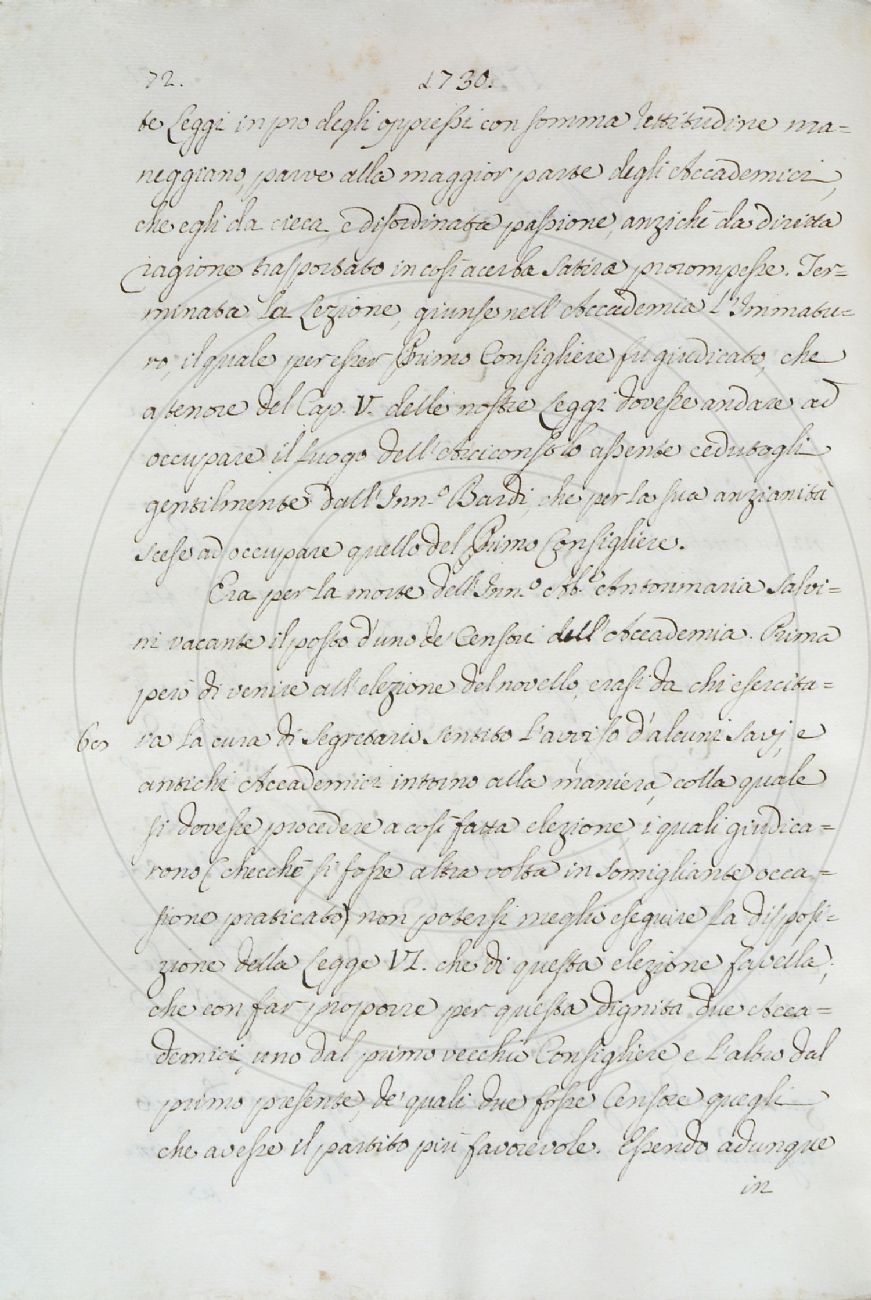 72. 1730.
te Leggi in pro degli oppressi con somma rettitudine ma=
neggiano, parve alla maggior parte degli Accademici,
che egli da cieca, e disordinata passione, anzichè da diritta
ragione trasportato in così acerba satira prorompesse. Ter=
minata la Lezione, giunse nell'Accademia l'Immatu=
ro, il quale per esser Primo Consigliere fu giudicato, che
a tenore del Cap. V. delle nostre Leggi dovesse andare ad
occupare il luogo dell'Arciconsolo assente cedutogli
gentilmente dall'Inn.º Bardi, che per la sua anzianità
scese ad occupare quello del Primo Consigliere.
Era per la morte dell'Inn.º Ab.e Antonmaria Salvi=
ni vacante il posto d'uno de' Censori dell'Accademia. Prima
però di venire all'elezione del novello, erasi da chi esercita=
va la cura di Segretario sentito l'avviso d'alcuni savj, e
antichi Accademici intorno alla maniera, colla quale
si dovesse procedere a così fatta elezione i quali giudica=
rono (checchè si fosse altra volta in somigliante occa=
sione praticato) non potersi meglio eseguire la disposi=
zione della Legge VI. che di questa elezione favella,
che con far proporre per questa dignità due Acca=
demici, uno dal primo vecchio Consigliere e l'altro dal
primo presente, de' quali due fosse Censore quegli
che avesse il partito più favorevole. Essendo adunque
in